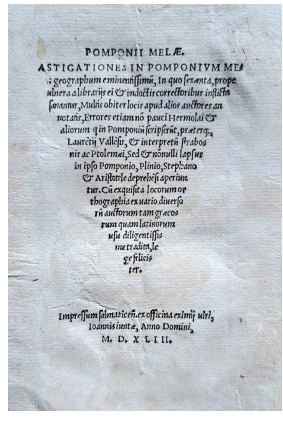 POMPONII MELÆ.
ASTIGATIONES IN POMPONIVM ME
geographum eminentissimũ, In quo sexcenta, prope
vulnera a librarijs ei & indoctis correctoribus inflicta
sanantur, Multis obiter locis apud alios auctores an
notatis, Errores etiam nõ pauci Hermolai &
aliorum q in Pomponiũ scripserũt, præterq;
Laurẽtij Vallẽsis, & interpretũ strabo
nis ac Ptolemæi, Sed & nõnulli lapsus
in ipso Pomponio, Plinio, Stephano
& Aristotele deprehẽsi aperiun
tur. Cũ exquisita locorum or
thographia ex uario diuerso
rũ auctorum tam græcos
rum quam latinorum
usu diligentiss
me tradita, le
ge fœlicis
ter.
Impressum salmaticeñ. ex officina eximij uiri,
Ioannis iuntæ, Anno Domini,
M. D. XLIII.